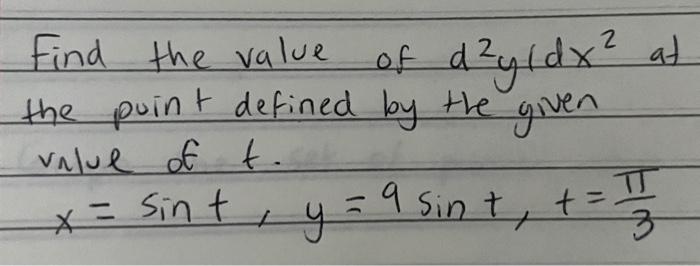 Find the value of d²y/dx² at
the point defined by the given
value of t.
x = sin t, y = 9 sin t, t = π/3